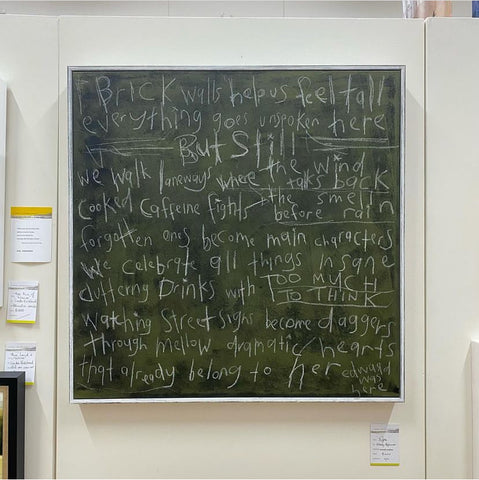 Brick walls help us feel tall
everything goes unspoken here
But Still
we walk laneways where the wind
talks back
cooked caffeine fights the smell in
before rain
forgotten ones become main characters
we celebrate all things insane
cluttering Drinks with TOO MUCH
TO THINK
watching Street signs become daggers
through mellow dramatic hearts
that already belong to her
edward
was
here